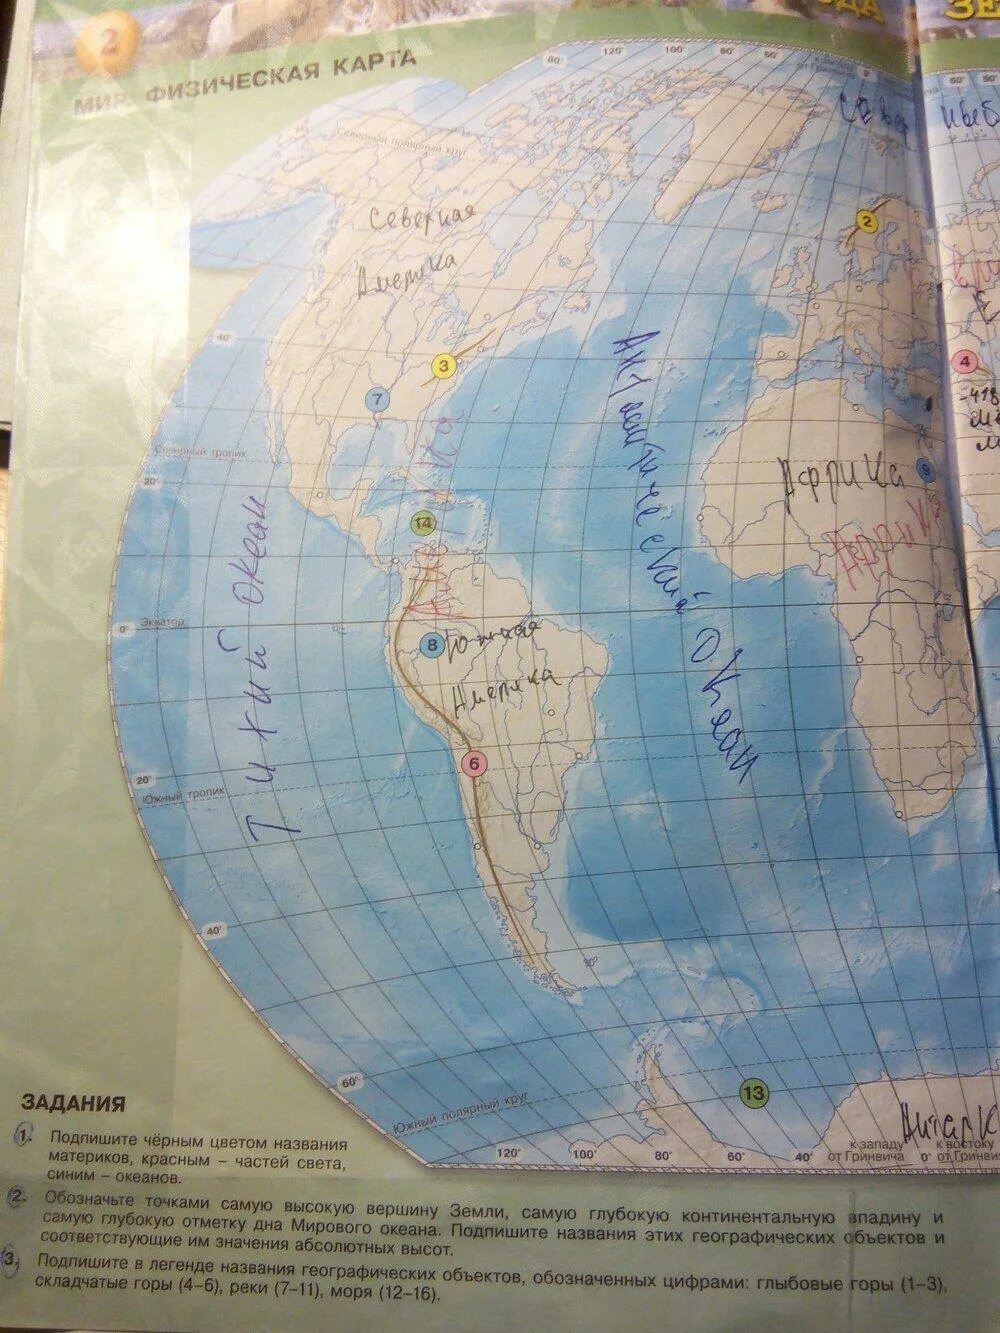 2
МИР. ФИЗИЧЕСКАЯ КАРТА
ОДА
ЗЕ
80°
120°
100°
80°
60°
от Гринвича
0°
60°
80°
Северный полярный круг
Северная
Америка
2
40°
3
7
4
Северный тропик
20°
Атлантический океан
Африка
9
Америка
14
Африк
Тихий океан
Экватор
0°
8
Южная
Америка
6
20°
Южный тропик
40°
60°
13
Южный полярный круг
Антарк
120°
100°
80°
60°
40°
к западу
от Гринвича
0°
к востоку
от Гринви
ЗАДАНИЯ
1. Подпишите чёрным цветом названия
материков, красным – частей света,
синим – океанов.
2. Обозначьте точками самую высокую вершину Земли, самую глубокую континентальную впадину и
самую глубокую отметку дна Мирового океана. Подпишите названия этих географических объектов и
соответствующие им значения абсолютных высот.
3. Подпишите в легенде названия географических объектов, обозначенных цифрами: глыбовые горы (1–3),
складчатые горы (4–6), реки (7–11), моря (12–16).